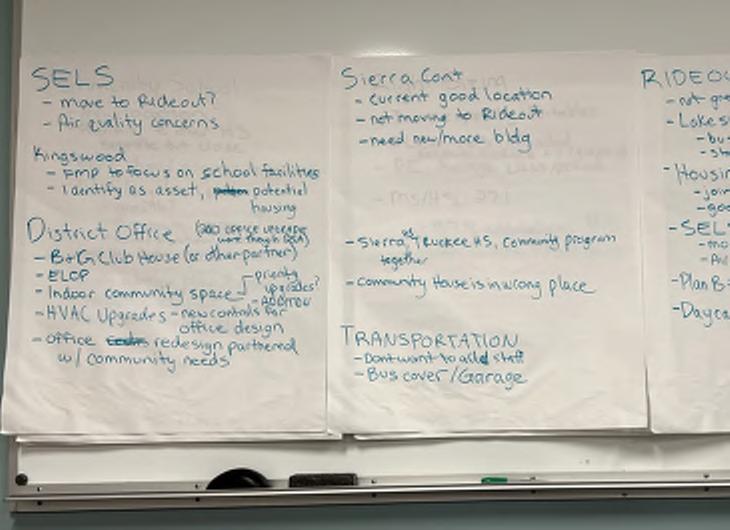 SELS
- move to Rideout?
- Air quality concerns
Kingswood
- FMP to focus on school facilities
- Identify as asset, potential
housing
District Office
- B+G Club House (or other partner)
- ELOP
- Indoor community space
priority
upgrades?
- HVAC Upgrades - new controls for
office design
- office redesign partnered
w/ community needs
Sierra Cont
- current good location
- not moving to Rideout
- need new/more bldg
- Sierra, Truckee HS, community program
together
- Community House is in wrong place
TRANSPORTATION
- Dont want to add staff
- Bus cover/Garage
RIDEO
- not gre
- Lake s
- bu
- Housin
- join
- goo
- SEL
- mo
- Plan B
- Dayca